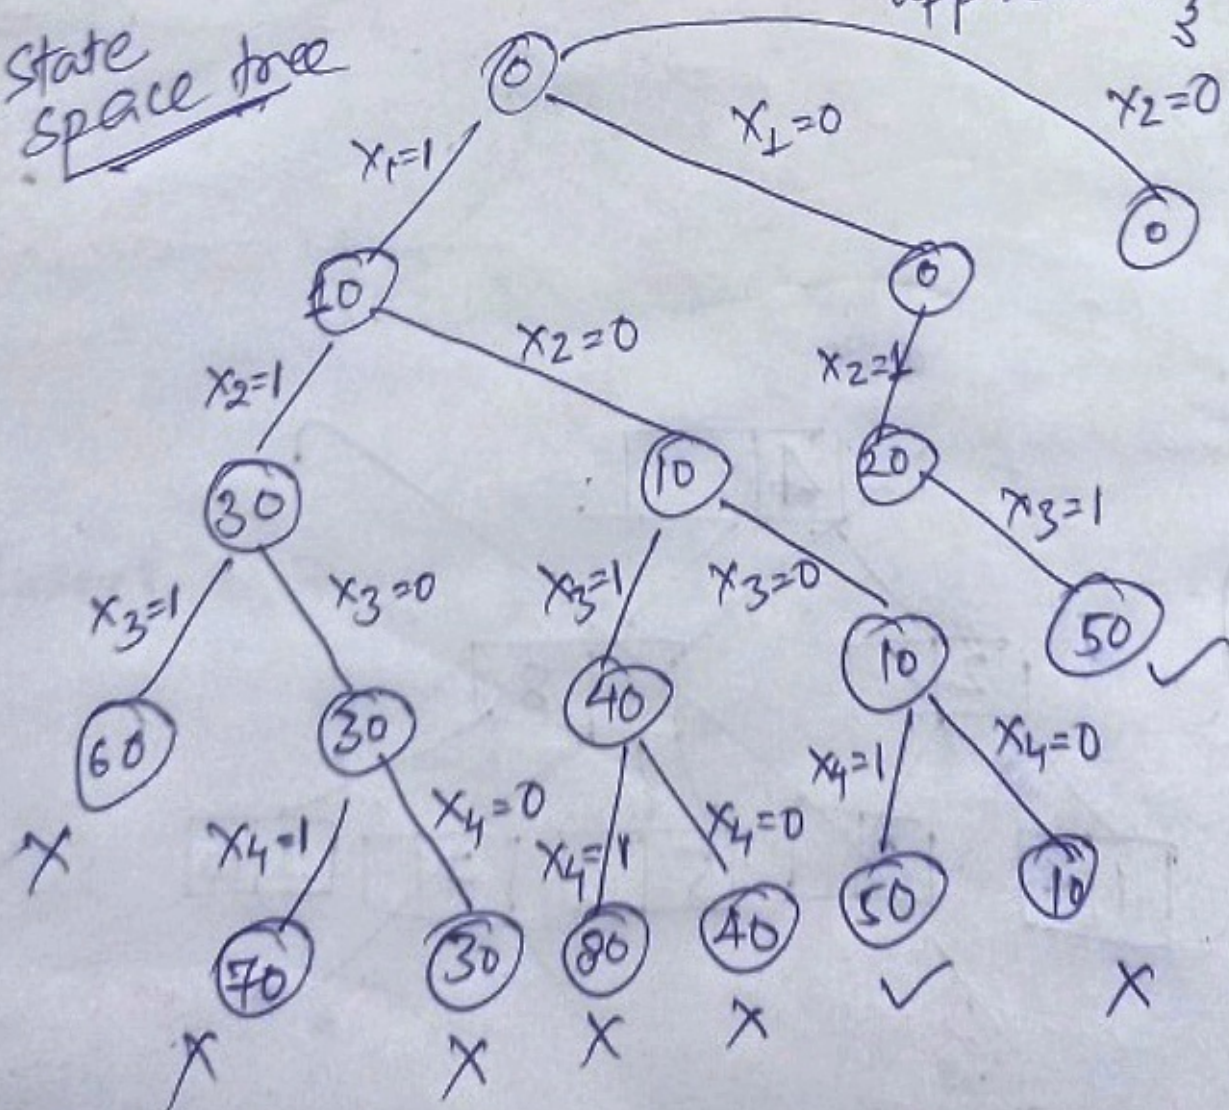 State
space tree
3
0
X1=1
X1=0
X2=0
10
0
0
X2=1
X2=0
X2=1
30
10
20
X3=1
X3=0
X3=1
X3=0
X3=1
60
30
40
10
50
✓
X
X4=1
X4=0
X4=1
X4=0
X4=1
X4=0
70
30
80
40
50
10
X
X
X
X
✓
X